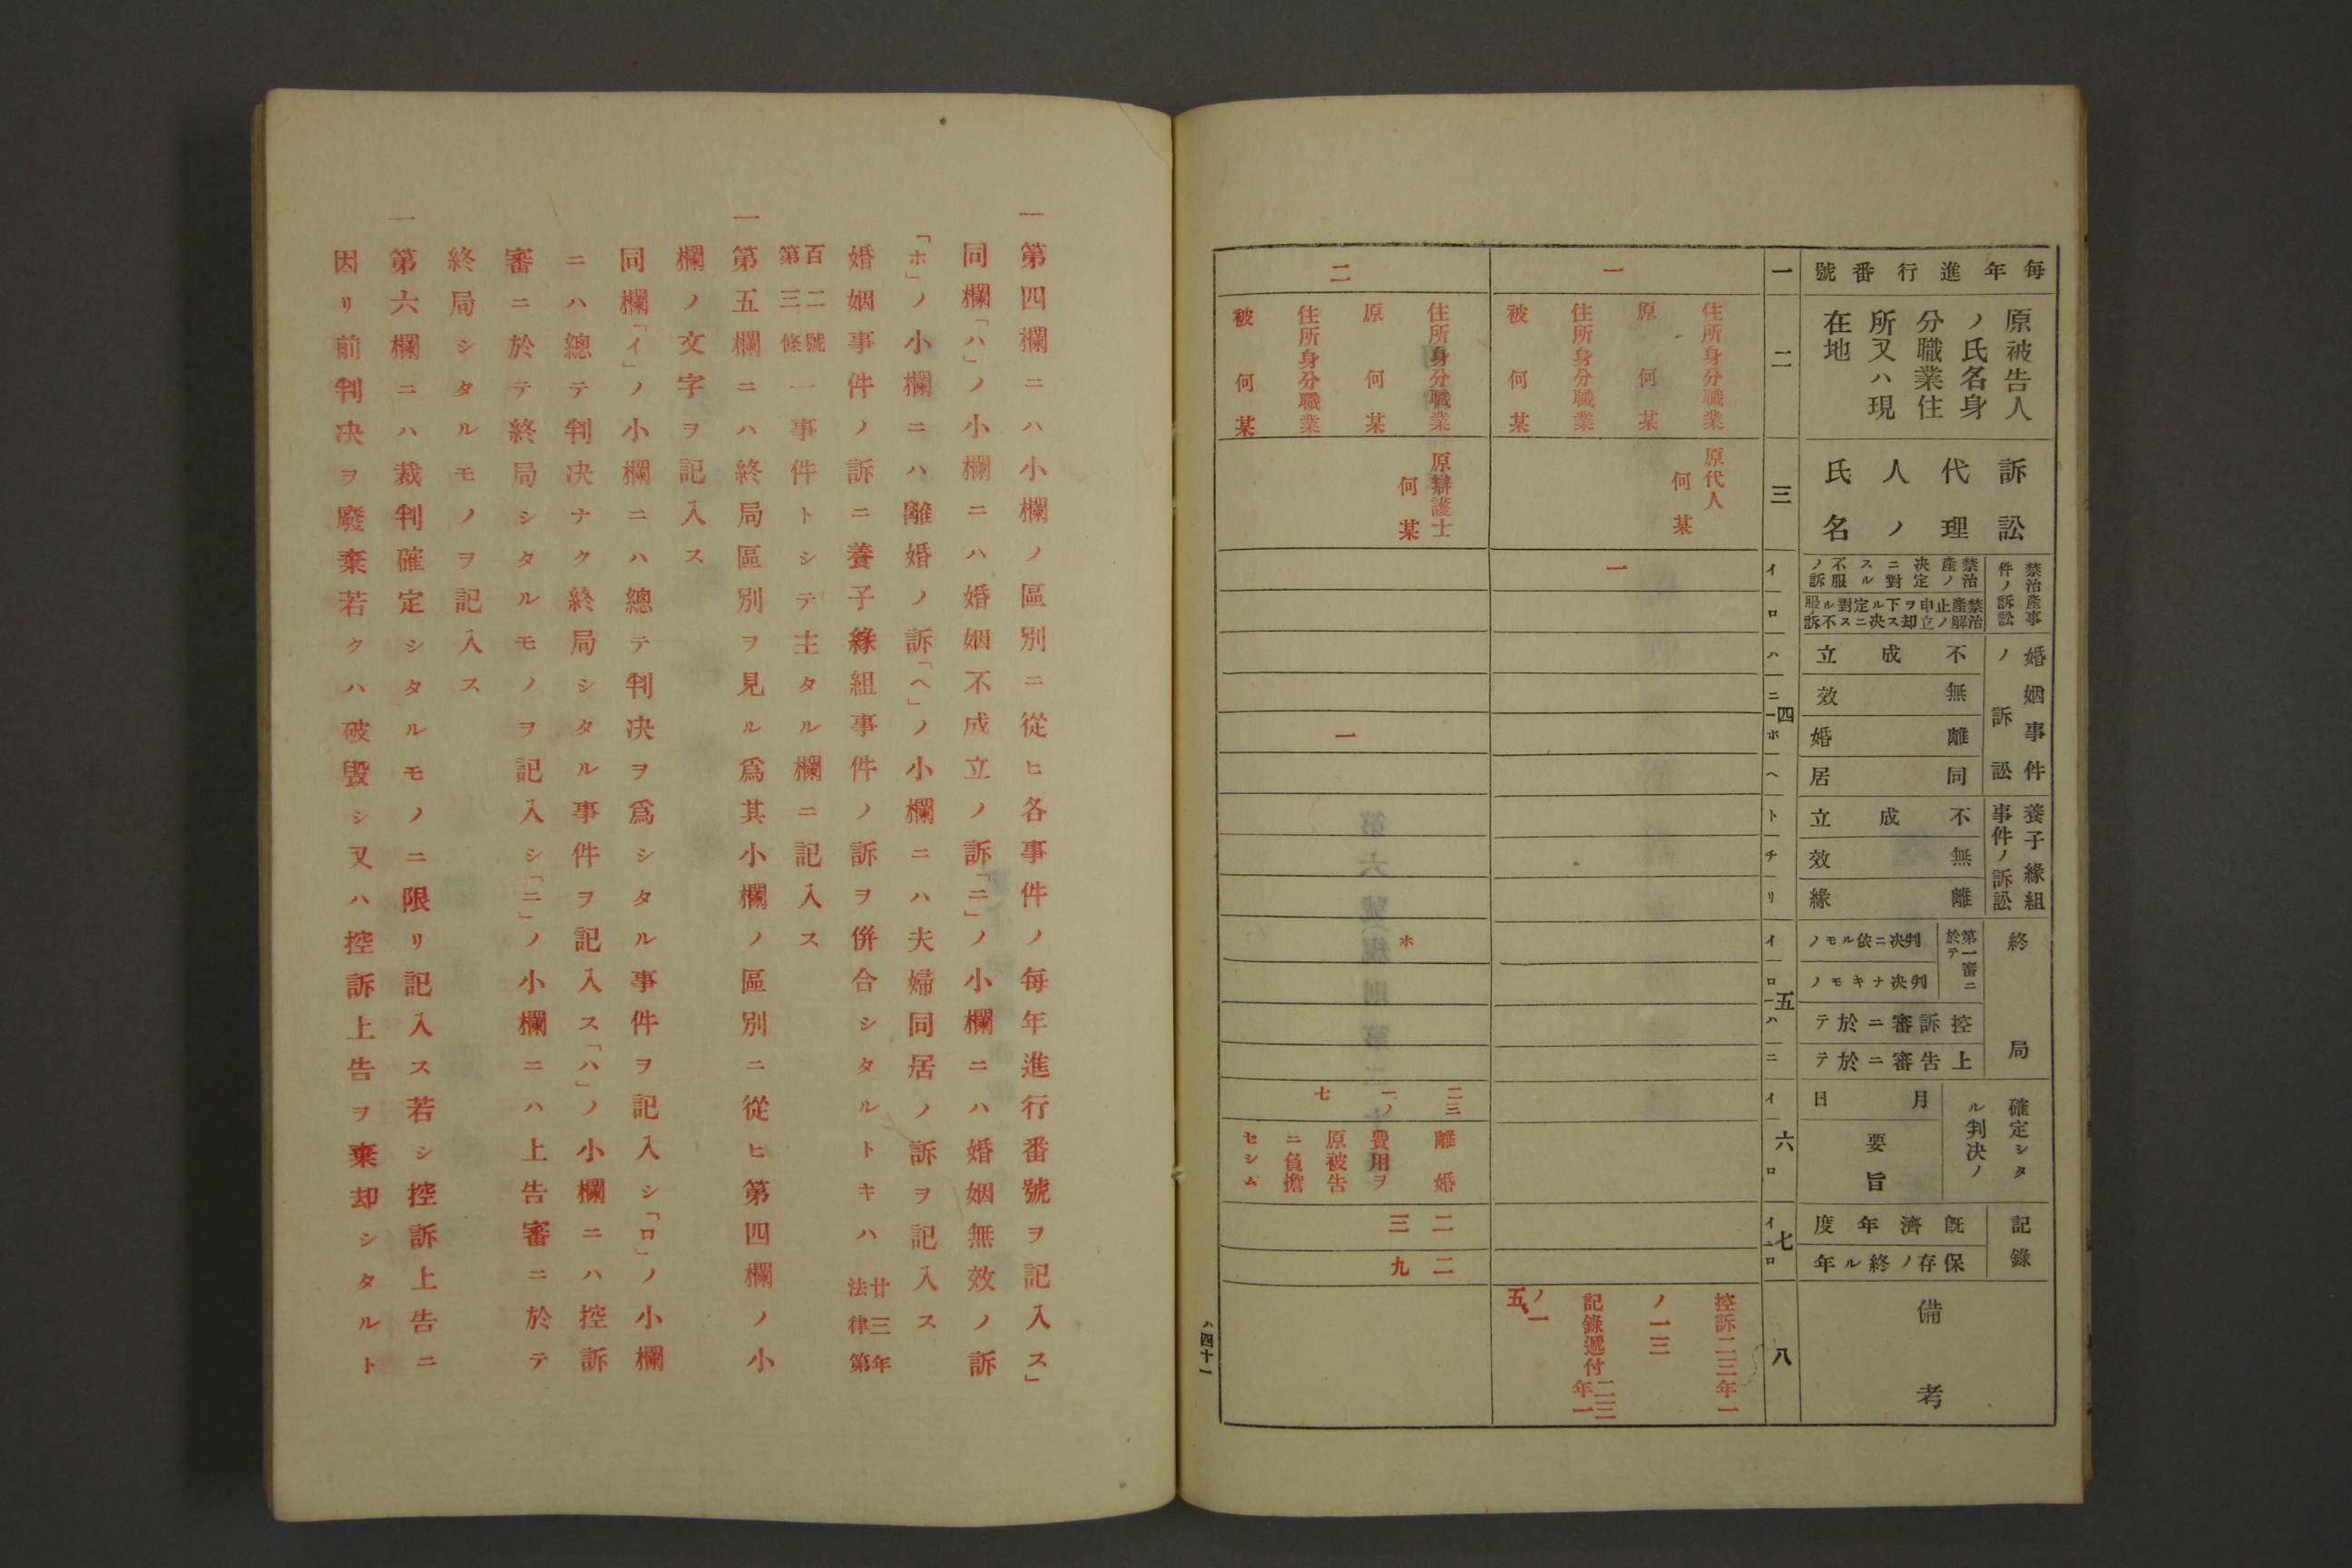 毎年進行番號
原被告人
ノ氏名身
分職業住
所又ハ現
在地
訴訟
代理
人ノ
氏名
禁治産事
件ノ訴訟
禁治
産ノ
決定
ニ對
スル
不服
ノ訴
禁治
産解
止ノ
申立
ヲ却
下ス
ル決
定ニ
對ス
ル不
服ノ訴
婚姻事件
ノ訴訟
不成立
無效
離婚
同居
養子緣組
事件ノ訴訟
不成立
無效
離緣
終局
第一審ニ
於テ
判決ニ依ルモノ
判決ナキモノ
控訴審ニ於テ
上告審ニ於テ
確定シタ
ル判決ノ
月日
要旨
記錄
既濟年度
保存ノ終ル年
備考
一
二
三
四
イ
ロ
ハ
ニ
ホ
ヘ
ト
チ
リ
五
イ
ロ
ハ
ニ
六
イ
ロ
七
イ
ロ
八
一
住所身分職業
原 何某
住所身分職業
被 何某
原代人
何某
一
控訴二三年一
ノ一三
記錄遞付二三年一
ノ一五
二
住所身分職業
原 何某
住所身分職業
被 何某
原辯護士
何某
一
ホ
二三
一ノ
七
離婚
費用ヲ
原被告
ニ負擔
セシム
二三
二九
ハ四十一
一 第四欄ニハ小欄ノ區別ニ從ヒ各事件ノ每年進行番號ヲ記入ス」
同欄「ハ」ノ小欄ニハ婚姻不成立ノ訴「ニ」ノ小欄ニハ婚姻無效ノ訴
「ホ」ノ小欄ニハ離婚ノ訴「ヘ」ノ小欄ニハ夫婦同居ノ訴ヲ記入ス
婚姻事件ノ訴ニ養子緣組事件ノ訴ヲ併合シタルトキハ廿三年法律第
百二號第三條一事件トシテ主タル欄ニ記入ス
一 第五欄ニハ終局區別ヲ見ル爲其小欄ノ區別ニ從ヒ第四欄ノ小
欄ノ文字ヲ記入ス
同欄「イ」ノ小欄ニハ總テ判決ヲ爲シタル事件ヲ記入シ「ロ」ノ小欄
ニハ總テ判決ナク終局シタル事件ヲ記入ス「ハ」ノ小欄ニハ控訴
審ニ於テ終局シタルモノヲ記入シ「ニ」ノ小欄ニハ上告審ニ於テ
終局シタルモノヲ記入ス
一 第六欄ニハ裁判確定シタルモノニ限リ記入ス若シ控訴上告ニ
因リ前判決ヲ廢棄若クハ破毀シ又ハ控訴上告ヲ棄却シタルト